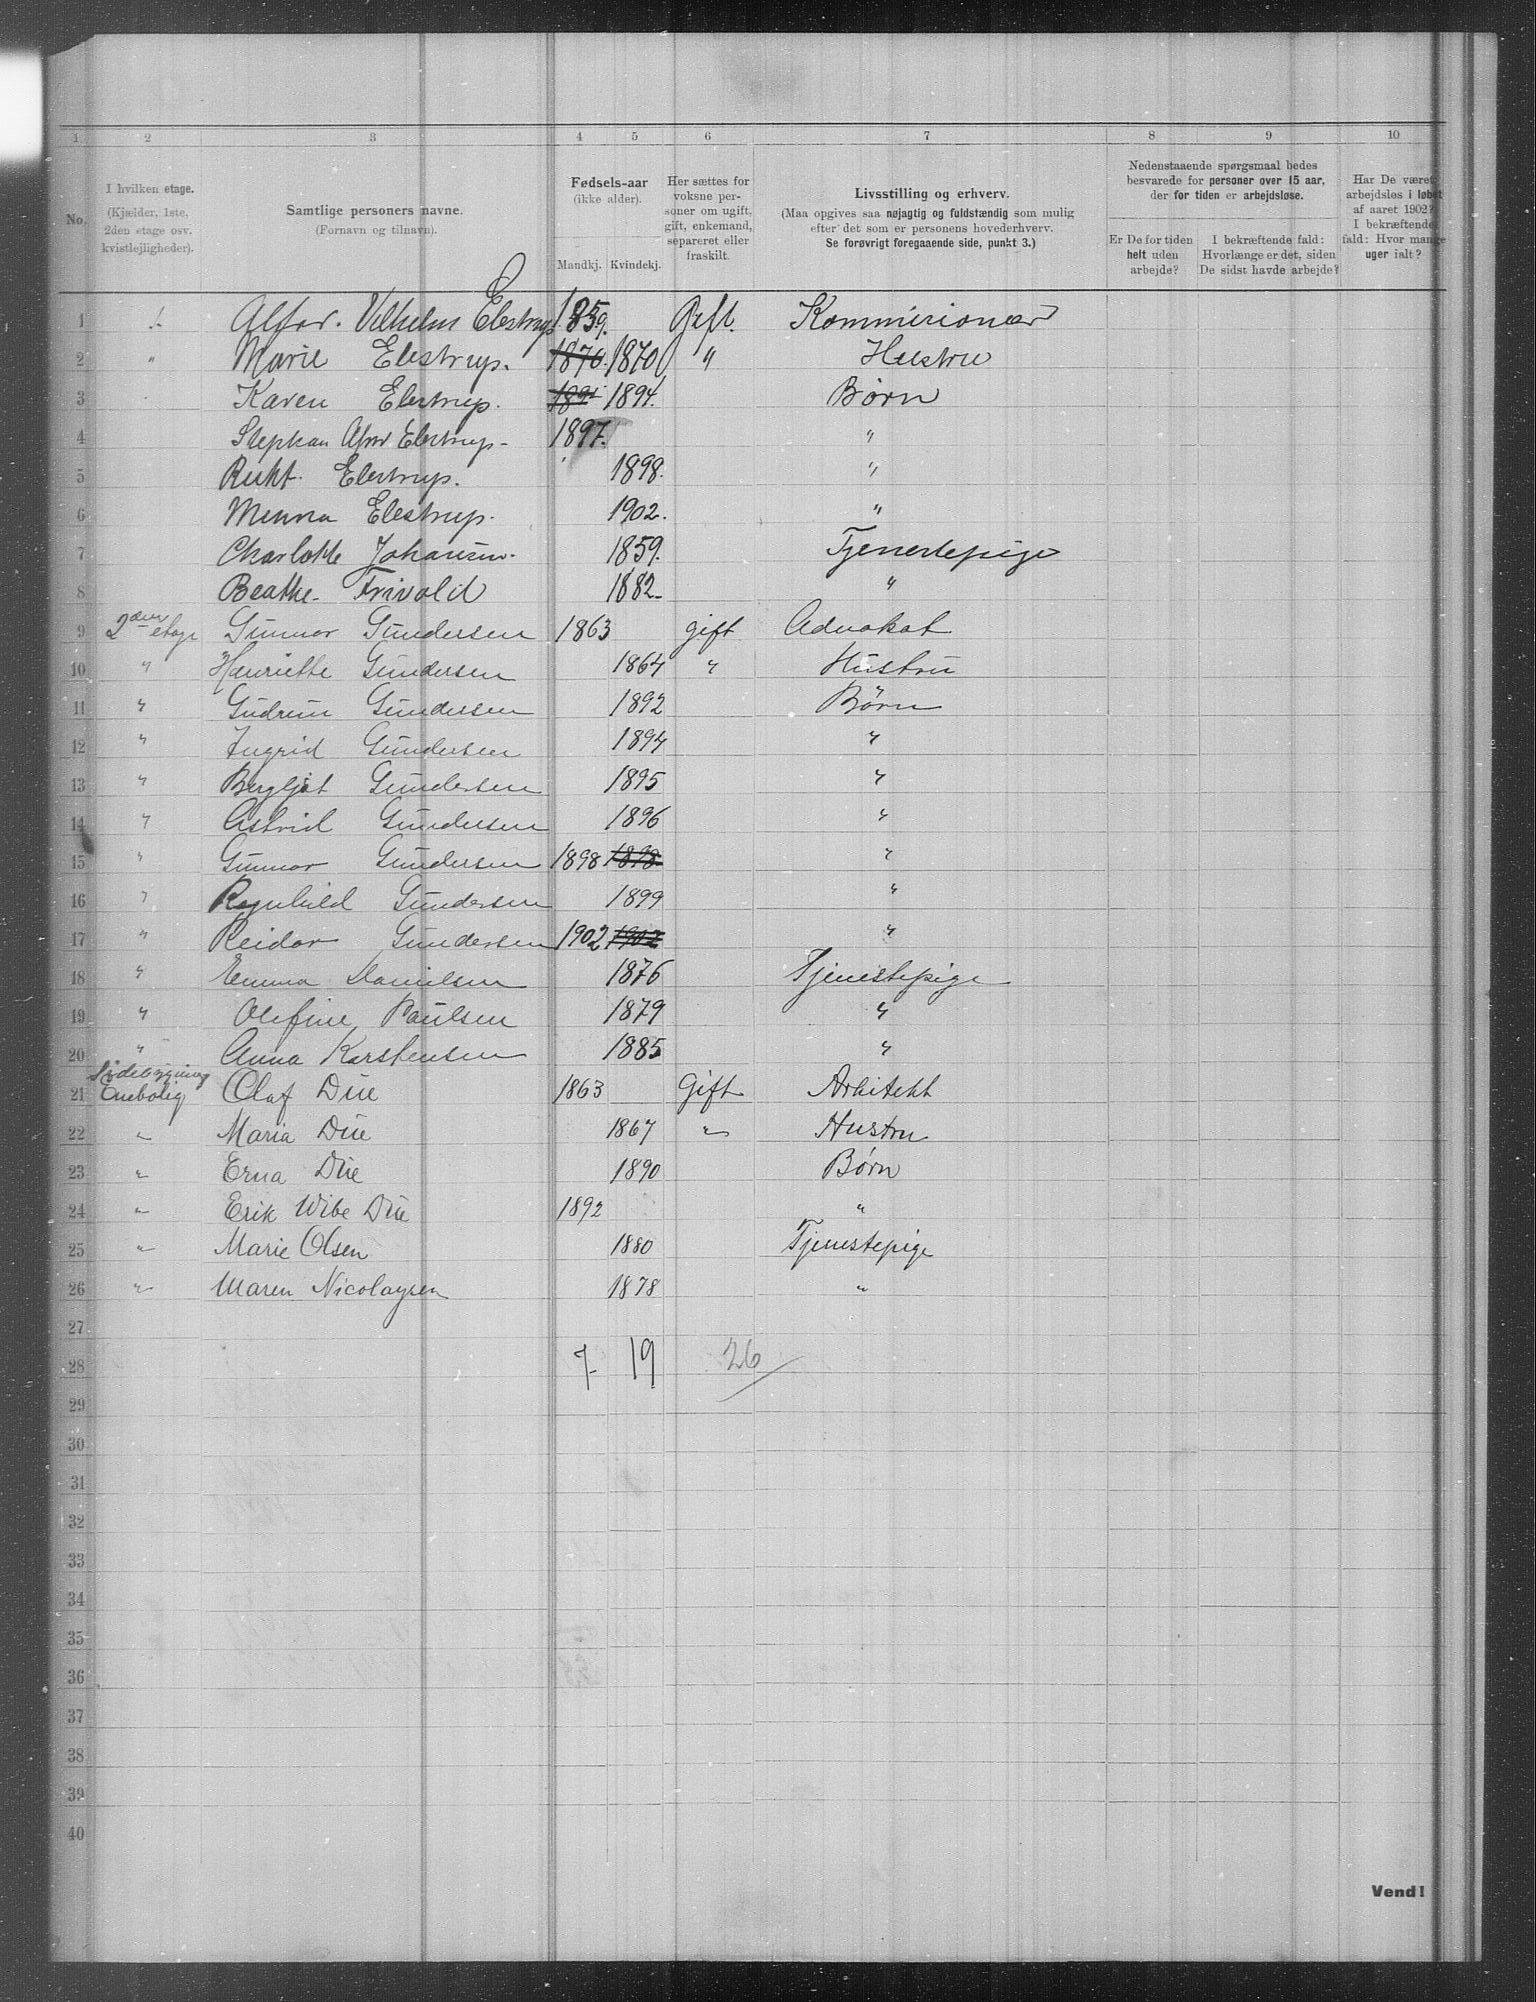 1 2 3 4 5 6 7 8 9 10
No.
I hvilken etage.
(Kjælder, 1ste,
2den etage osv.
kvistlejligheder).
Samtlige personers navne.
(Fornavn og tilnavn).
Fødsels-aar
(ikke alder).
Mandkj. Kvindekj.
Her sættes for
voksne per-
soner om ugift,
gift, enkemand,
separeret eller
fraskilt.
Livsstilling og erhverv.
(Maa opgives saa nøjagtig og fuldstændig som mulig
efter det som er personens hovederhverv.
Se forøvrigt foregaaende side, punkt 3.)
Nedenstaaende spørgsmaal bedes
besvarede for personer over 15 aar,
der for tiden er arbejdsløse.
Er De for tiden
helt uden
arbejde?
I bekræftende fald:
Hvorlænge er det, siden
De sidst havde arbejde?
Har De været
arbejdsløs i løbet
af aaret 1902?
I bekræftende
fald: Hvor mange
uger ialt?
1 Alfer. Vilhelm Elestrup 1859. Gift. Kommisionær
2 " Marie Elestrup. 1870. 1870 " Hustru
3 Karen Elestrup. 1894 1894. Børn
4 Stephan Alfer Elestrup. 1897. "
5 Ruht. Elestrup. 1898. "
6 Menna Elestrup. 1902. "
7 Charlotte Johansen. 1859. Tjenestepige
8 Beathe. Frivold 1882. "
9 2den etage Gunnar Gundersen 1863 gift Advokat
10 " Henriette Gundersen 1864 " Hustru
11 " Gudrun Gundersen 1892 Børn
12 " Ingrid Gundersen 1894 "
13 " Bergljot Gundersen 1895 "
14 " Astrid Gundersen 1896 "
15 " Gunnar Gundersen 1898 1898 "
16 " Ragnhild Gundersen 1899 "
17 " Reidar Gundersen 1902 1902 "
18 " Emma Danielsen 1876 Tjenestepige
19 " Olefine Paulsen 1879 "
20 " Anna Karstensen 1885 "
Sidebygning
21 Enebolig Olaf Due 1863 Gift Arkitekt
22 " Maria Due 1867 " Hustru
23 " Erna Due 1890 Børn
24 " Erik Wibe Due 1892 "
25 " Marie Olsen 1880 Tjenestepige
26 " Maren Nicolaysen 1878 "
27
28 7 19 26
29
30
31
32
33
34
35
36
37
38
39
40
Vend!